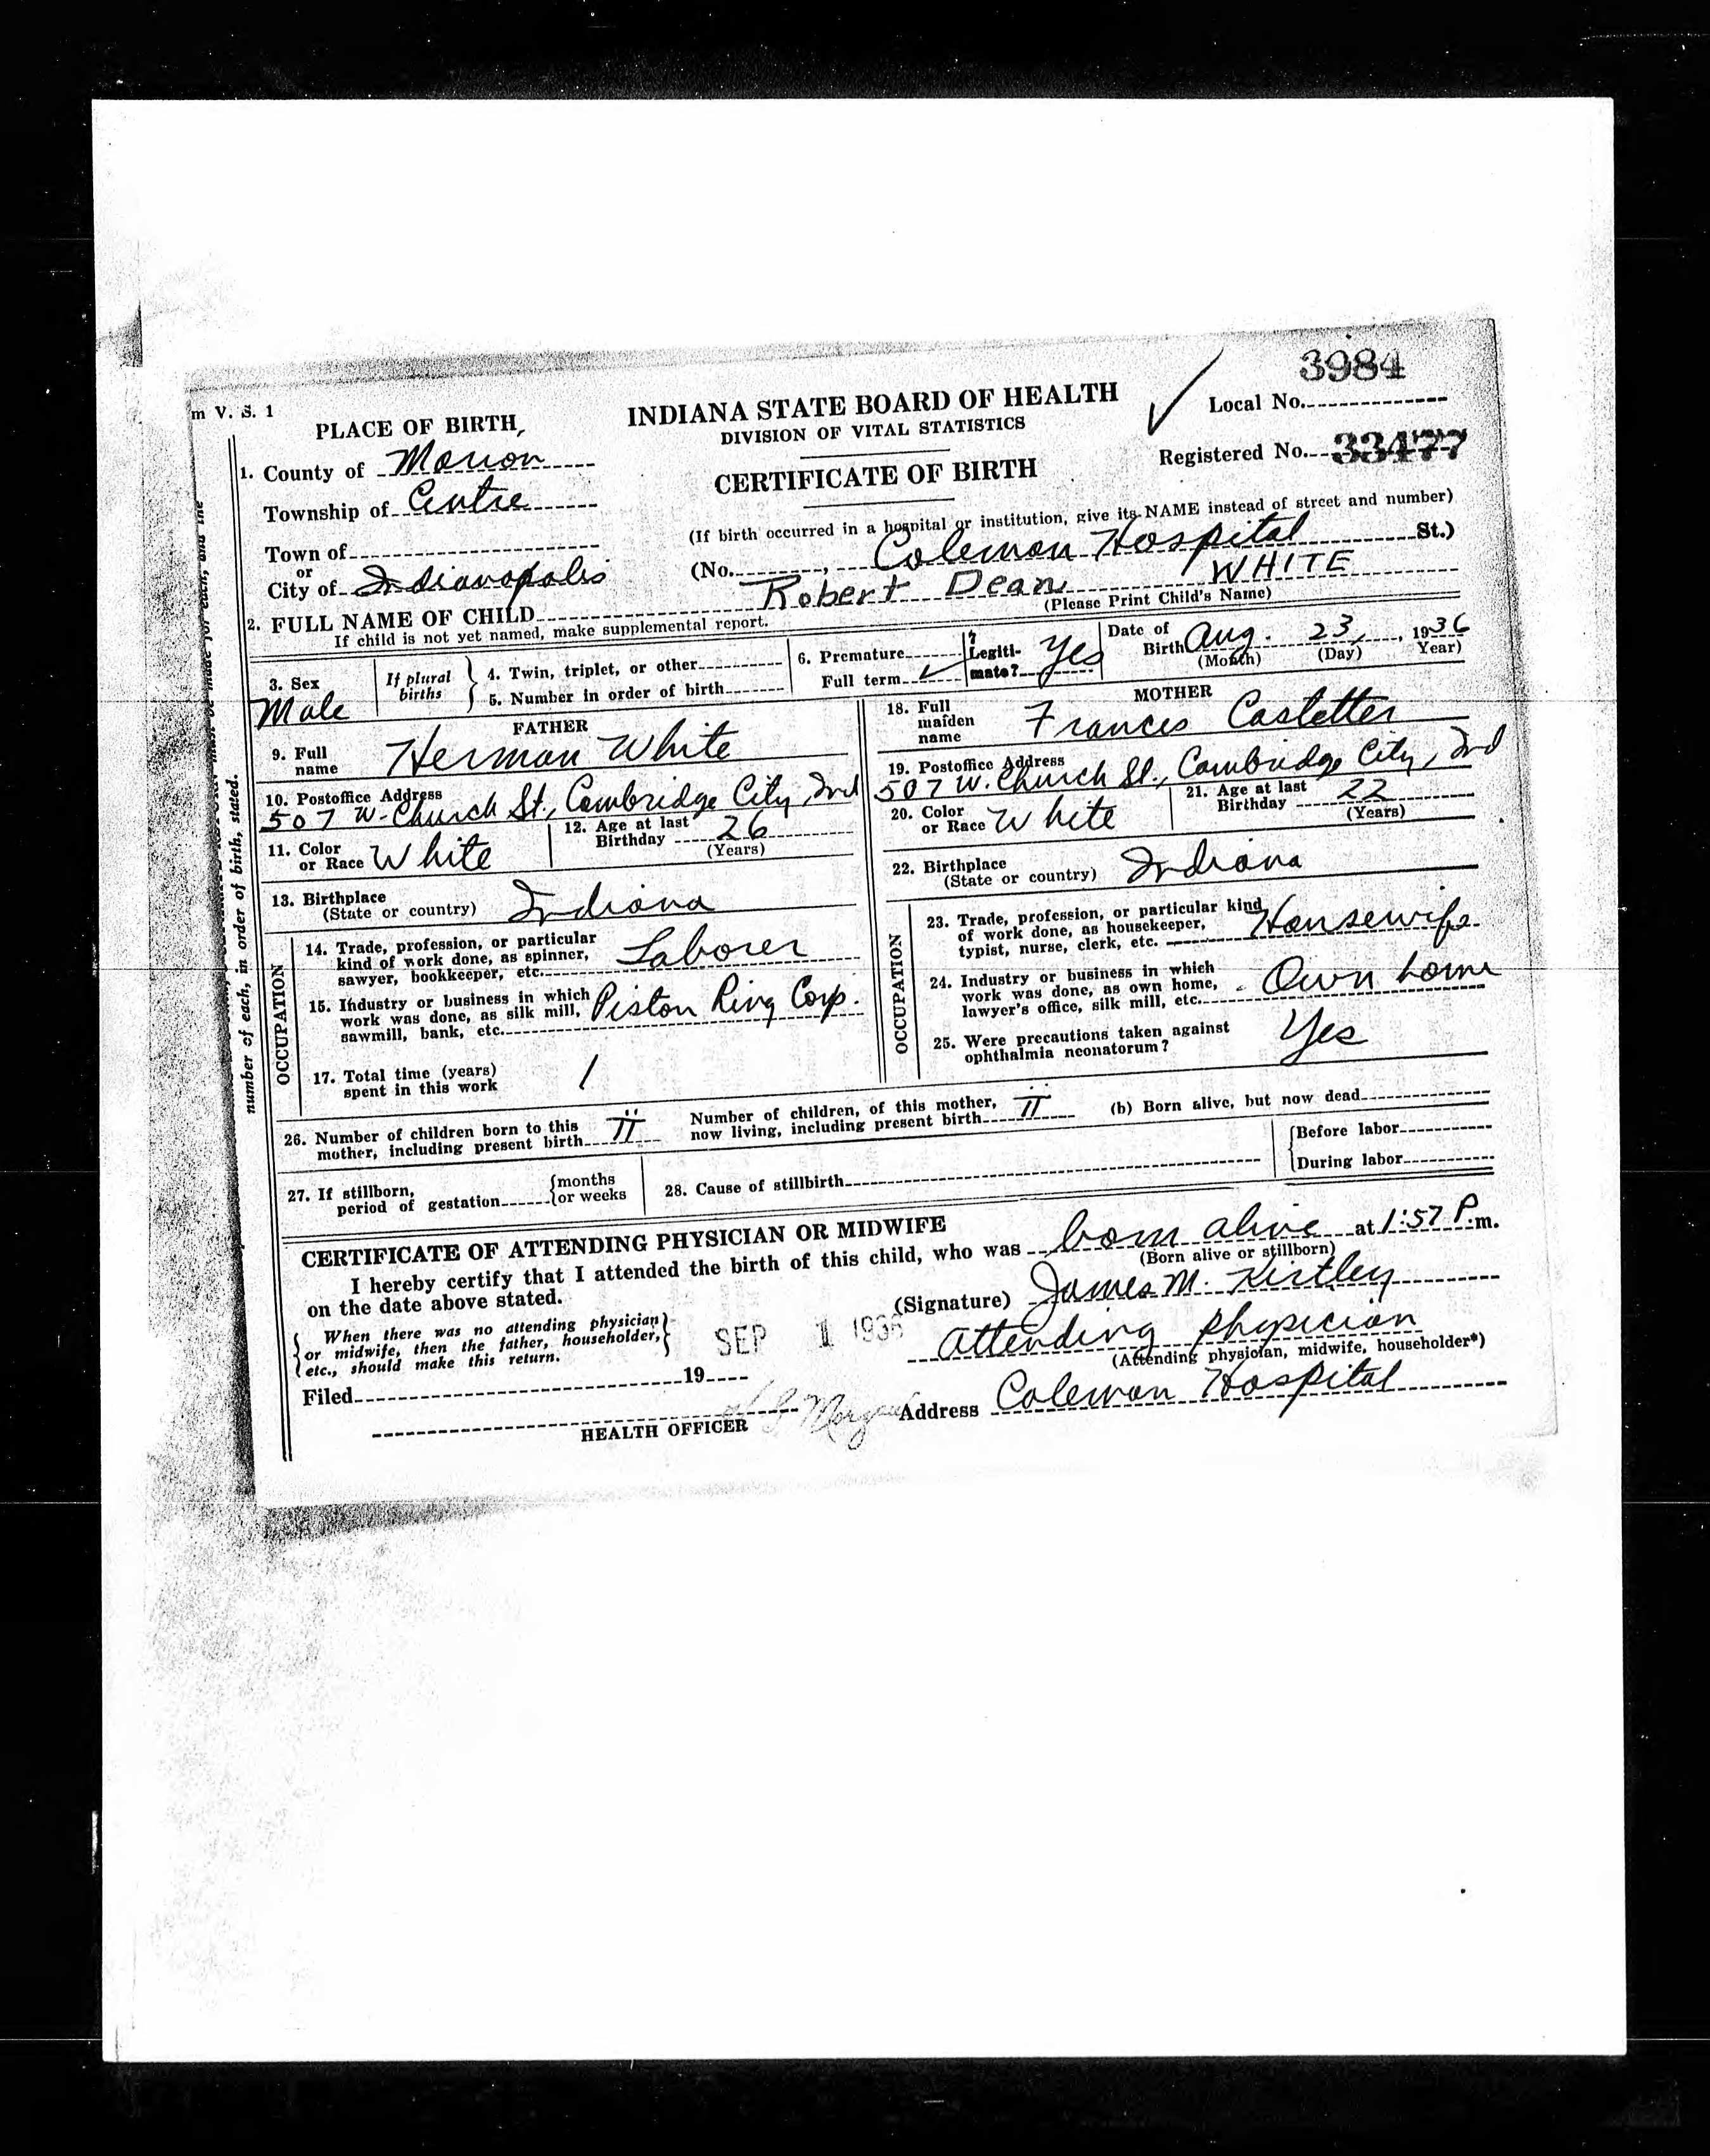 3984
m V. S. 1
INDIANA STATE BOARD OF HEALTH
Local No.
DIVISION OF VITAL STATISTICS
PLACE OF BIRTH
Registered No. 33477
1. County of Marion
CERTIFICATE OF BIRTH
Township of Centre
(If birth occurred in a hospital or institution, give its NAME instead of street and number)
Town of
or
City of Indianapolis
(No. , Coleman Hospital St.)
2. FULL NAME OF CHILD Robert Dean WHITE
(Please Print Child's Name)
If child is not yet named, make supplemental report.
3. Sex Male
If plural births
4. Twin, triplet, or other
5. Number in order of birth
6. Premature
Full term ✓
7 Legiti-mate? Yes
Date of Birth Aug. 23, 1936
(Month) (Day) Year)
FATHER
9. Full name Herman White
10. Postoffice Address
507 W. Church St., Cambridge City, Ind
11. Color or Race White
12. Age at last Birthday 26
(Years)
13. Birthplace
(State or country) Indiana
OCCUPATION
14. Trade, profession, or particular
kind of work done, as spinner,
sawyer, bookkeeper, etc. Laborer
15. Industry or business in which
work was done, as silk mill,
sawmill, bank, etc. Piston Ring Corp.
17. Total time (years)
spent in this work 1
MOTHER
18. Full maiden name Frances Castetter
19. Postoffice Address
507 W. Church St., Cambridge City, Ind
20. Color or Race White
21. Age at last Birthday 22
(Years)
22. Birthplace
(State or country) Indiana
OCCUPATION
23. Trade, profession, or particular kind
of work done, as housekeeper,
typist, nurse, clerk, etc. Housewife
24. Industry or business in which
work was done, as own home,
lawyer's office, silk mill, etc. Own home
25. Were precautions taken against
ophthalmia neonatorum? Yes
26. Number of children born to this
mother, including present birth II
Number of children, of this mother,
now living, including present birth II
(b) Born alive, but now dead
27. If stillborn,
period of gestation {months
or weeks
28. Cause of stillbirth
{Before labor
{During labor
CERTIFICATE OF ATTENDING PHYSICIAN OR MIDWIFE
I hereby certify that I attended the birth of this child, who was born alive at 1:57 P. m.
(Born alive or stillborn)
on the date above stated.
(Signature) James M. Kirtley
{When there was no attending physician
or midwife, then the father, householder,
etc., should make this return.}
SEP 1 1936
Attending physician
(Attending physician, midwife, householder*)
Filed 19
Morgan
Address Coleman Hospital
HEALTH OFFICER
number of each, in order of birth, stated.